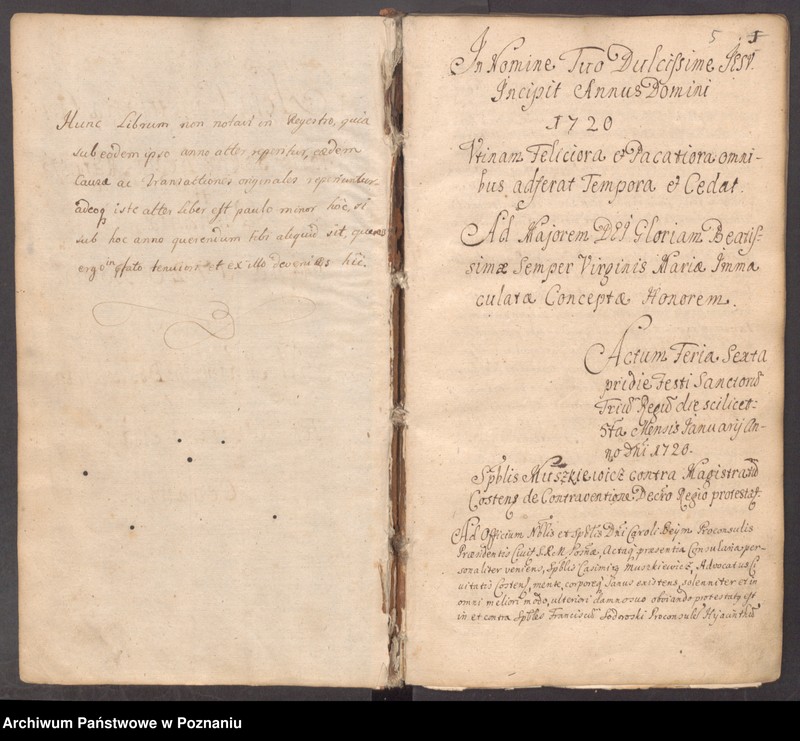 Hunc Librum non notavi in Regestro, quia
sub eodem ipso anno alter reperitur, eædem
Causæ ac Transactiones originales reperiuntur
adeoq iste alter Liber est paulo minor hôc, si
sub hoc anno querendum tibi aliquid sit, quære
ergo in isto tenuiori et ex illo devenies hîc.
5 1
In Nomine Tuo Dulcissime JESV.
Incipit Annus Domini
1720
Vtinam Feliciora & Pacatiora omni-
bus adferat Tempora & Cedat.
Ad Majorem DEI Gloriam Beatis-
simæ Semper Virginis Mariæ Imma
culatæ Conceptæ Honorem.
Actum Feria Sexta
pridie Festi Sanctorū
Triū Regū die scilicet
5ta Mensis Januarij An-
no Dñi 1720.
Spblis Muszkiewicz contra Magistratū
Costens de Contraventione Decro Regio protestat.
Ad Officium Nblis et Spblis Dñi Caroli Beym Proconsulis
Præsidentis Civit S.R.M. Posnæ, Actaq præsentia Consularia per-
sonaliter veniens, Spblis Casimirq Muszkiewicz, Advocatus Ci
vitatis Costens, mente, corporeq sanus existens, solenniter et in
omni meliori modo, ulteriori damnosuo obviando protestatq est
in et contra Spbles Franciscū Sodroski Proconsulē Hyacinthū
Archiwum Państwowe w Poznaniu